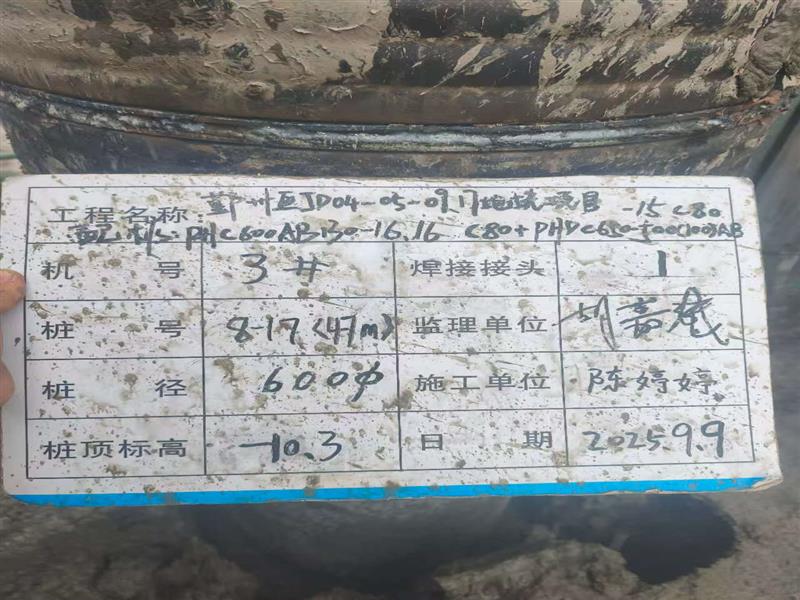 工程名称: 鄞州区JD04-05-09 17地块项目
PHC600AB130-16.16 C80+PHDC650-500(100)AB -15 C80
机 号 3# 焊接接头 1
桩 号 8-17(47m) 监理单位
桩 径 600φ 施工单位 陈婷婷
桩顶标高 -10.3 日 期 2025.9.9